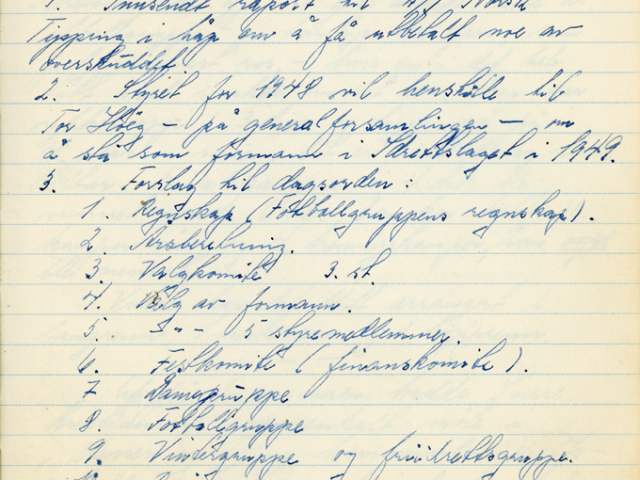 1. Innsendt rapport til A/S Norsk
Tipping i håp om å få utbetalt noe av
overskuddet.
2. Styret for 1948 vil henstille til
Tor Høeg - på generalforsamlingen - om
å stå som formann i Idrettslaget i 1949.
3. Forslag til dagsorden :
1. Regnskap (Fotballgruppens regnskap).
2. Årsberetning.
3. Valgkomité 3. st.
4. Valg av formann.
5. - " - 5 styremedlemmer.
6. Festkomité (finanskomite).
7 Damegruppe
8. Fotballgruppe
9. Vintergruppe og friidrettsgruppe.